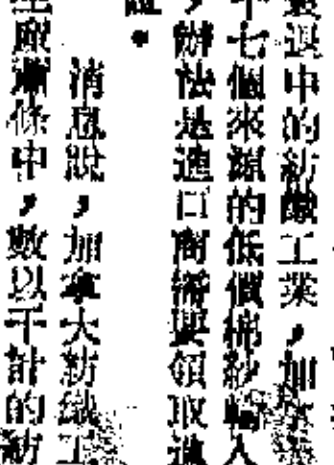 衰退中的紡織工業，加拿大
十七個來源的低價棉紗輸入
，辦法是進口商需要領取進
證。
消息說，加拿大紡織工
業蕭條中，數以千計的紡